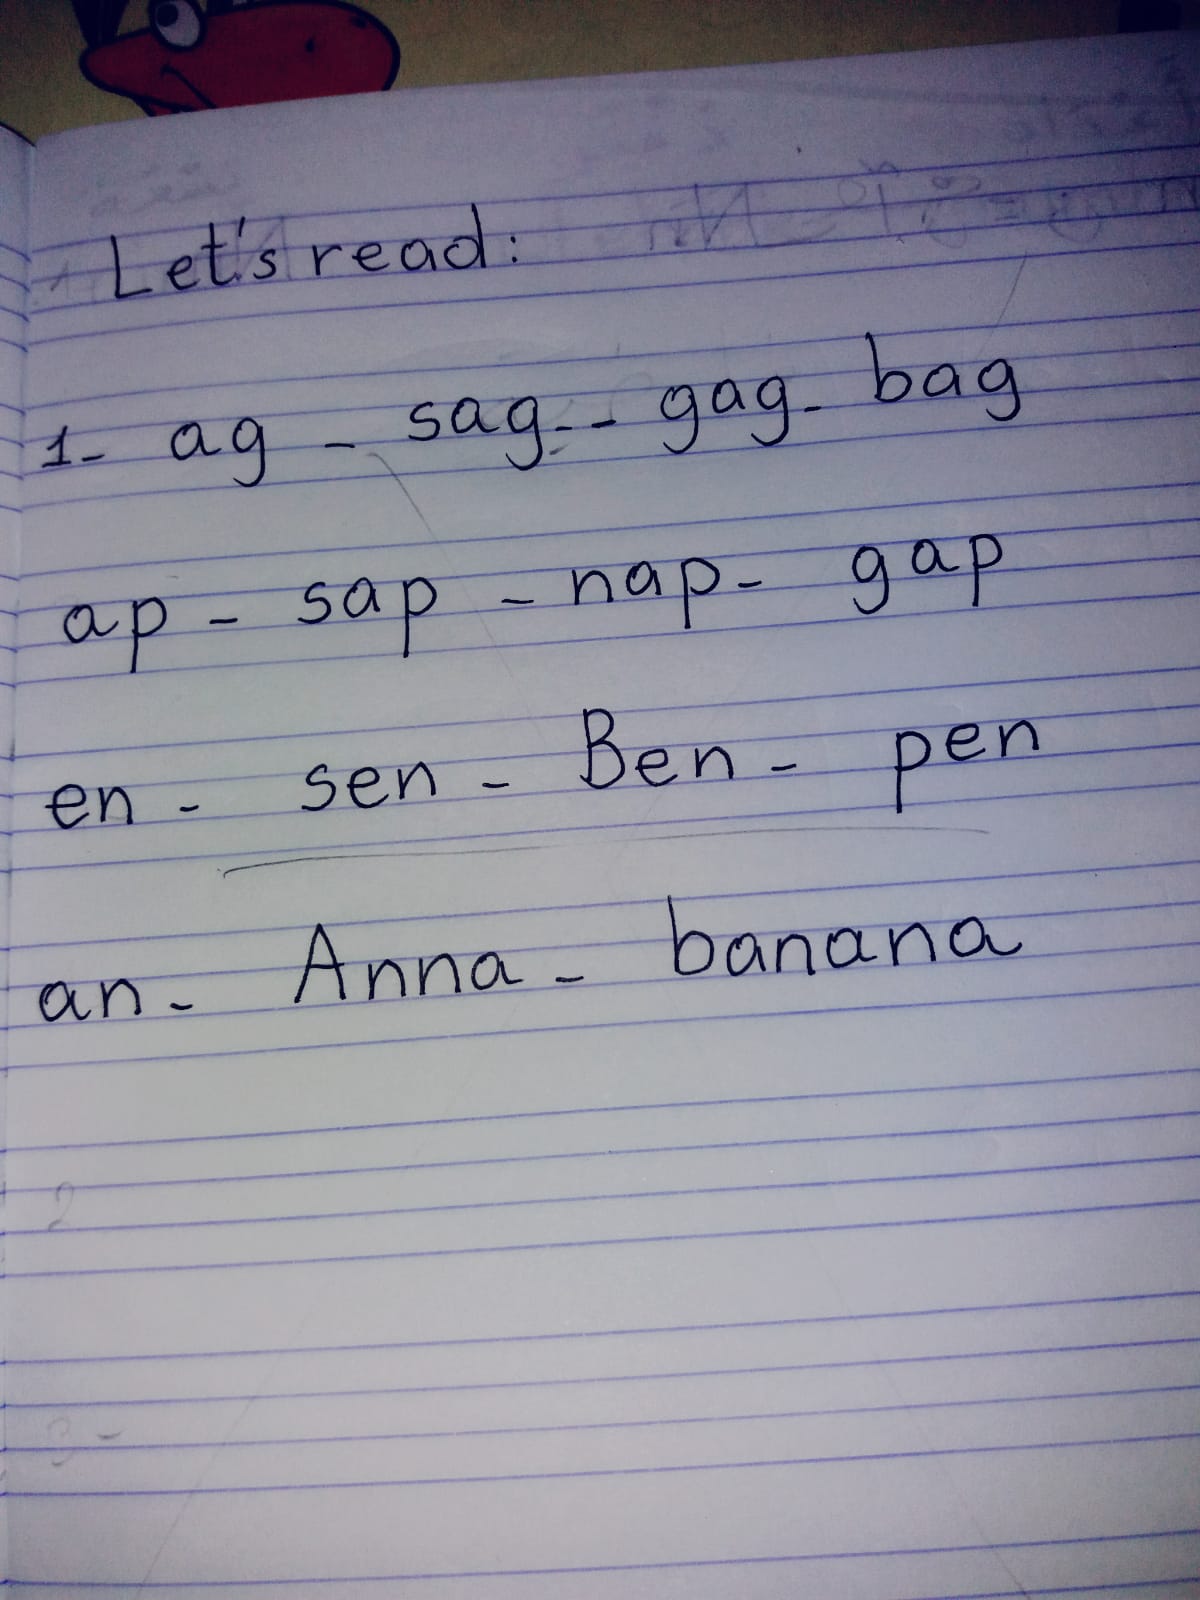 Let's read:
1- ag - sag-- gag- bag
ap - sap - nap- gap
en - sen - Ben - pen
an - Anna - banana
2
3 -